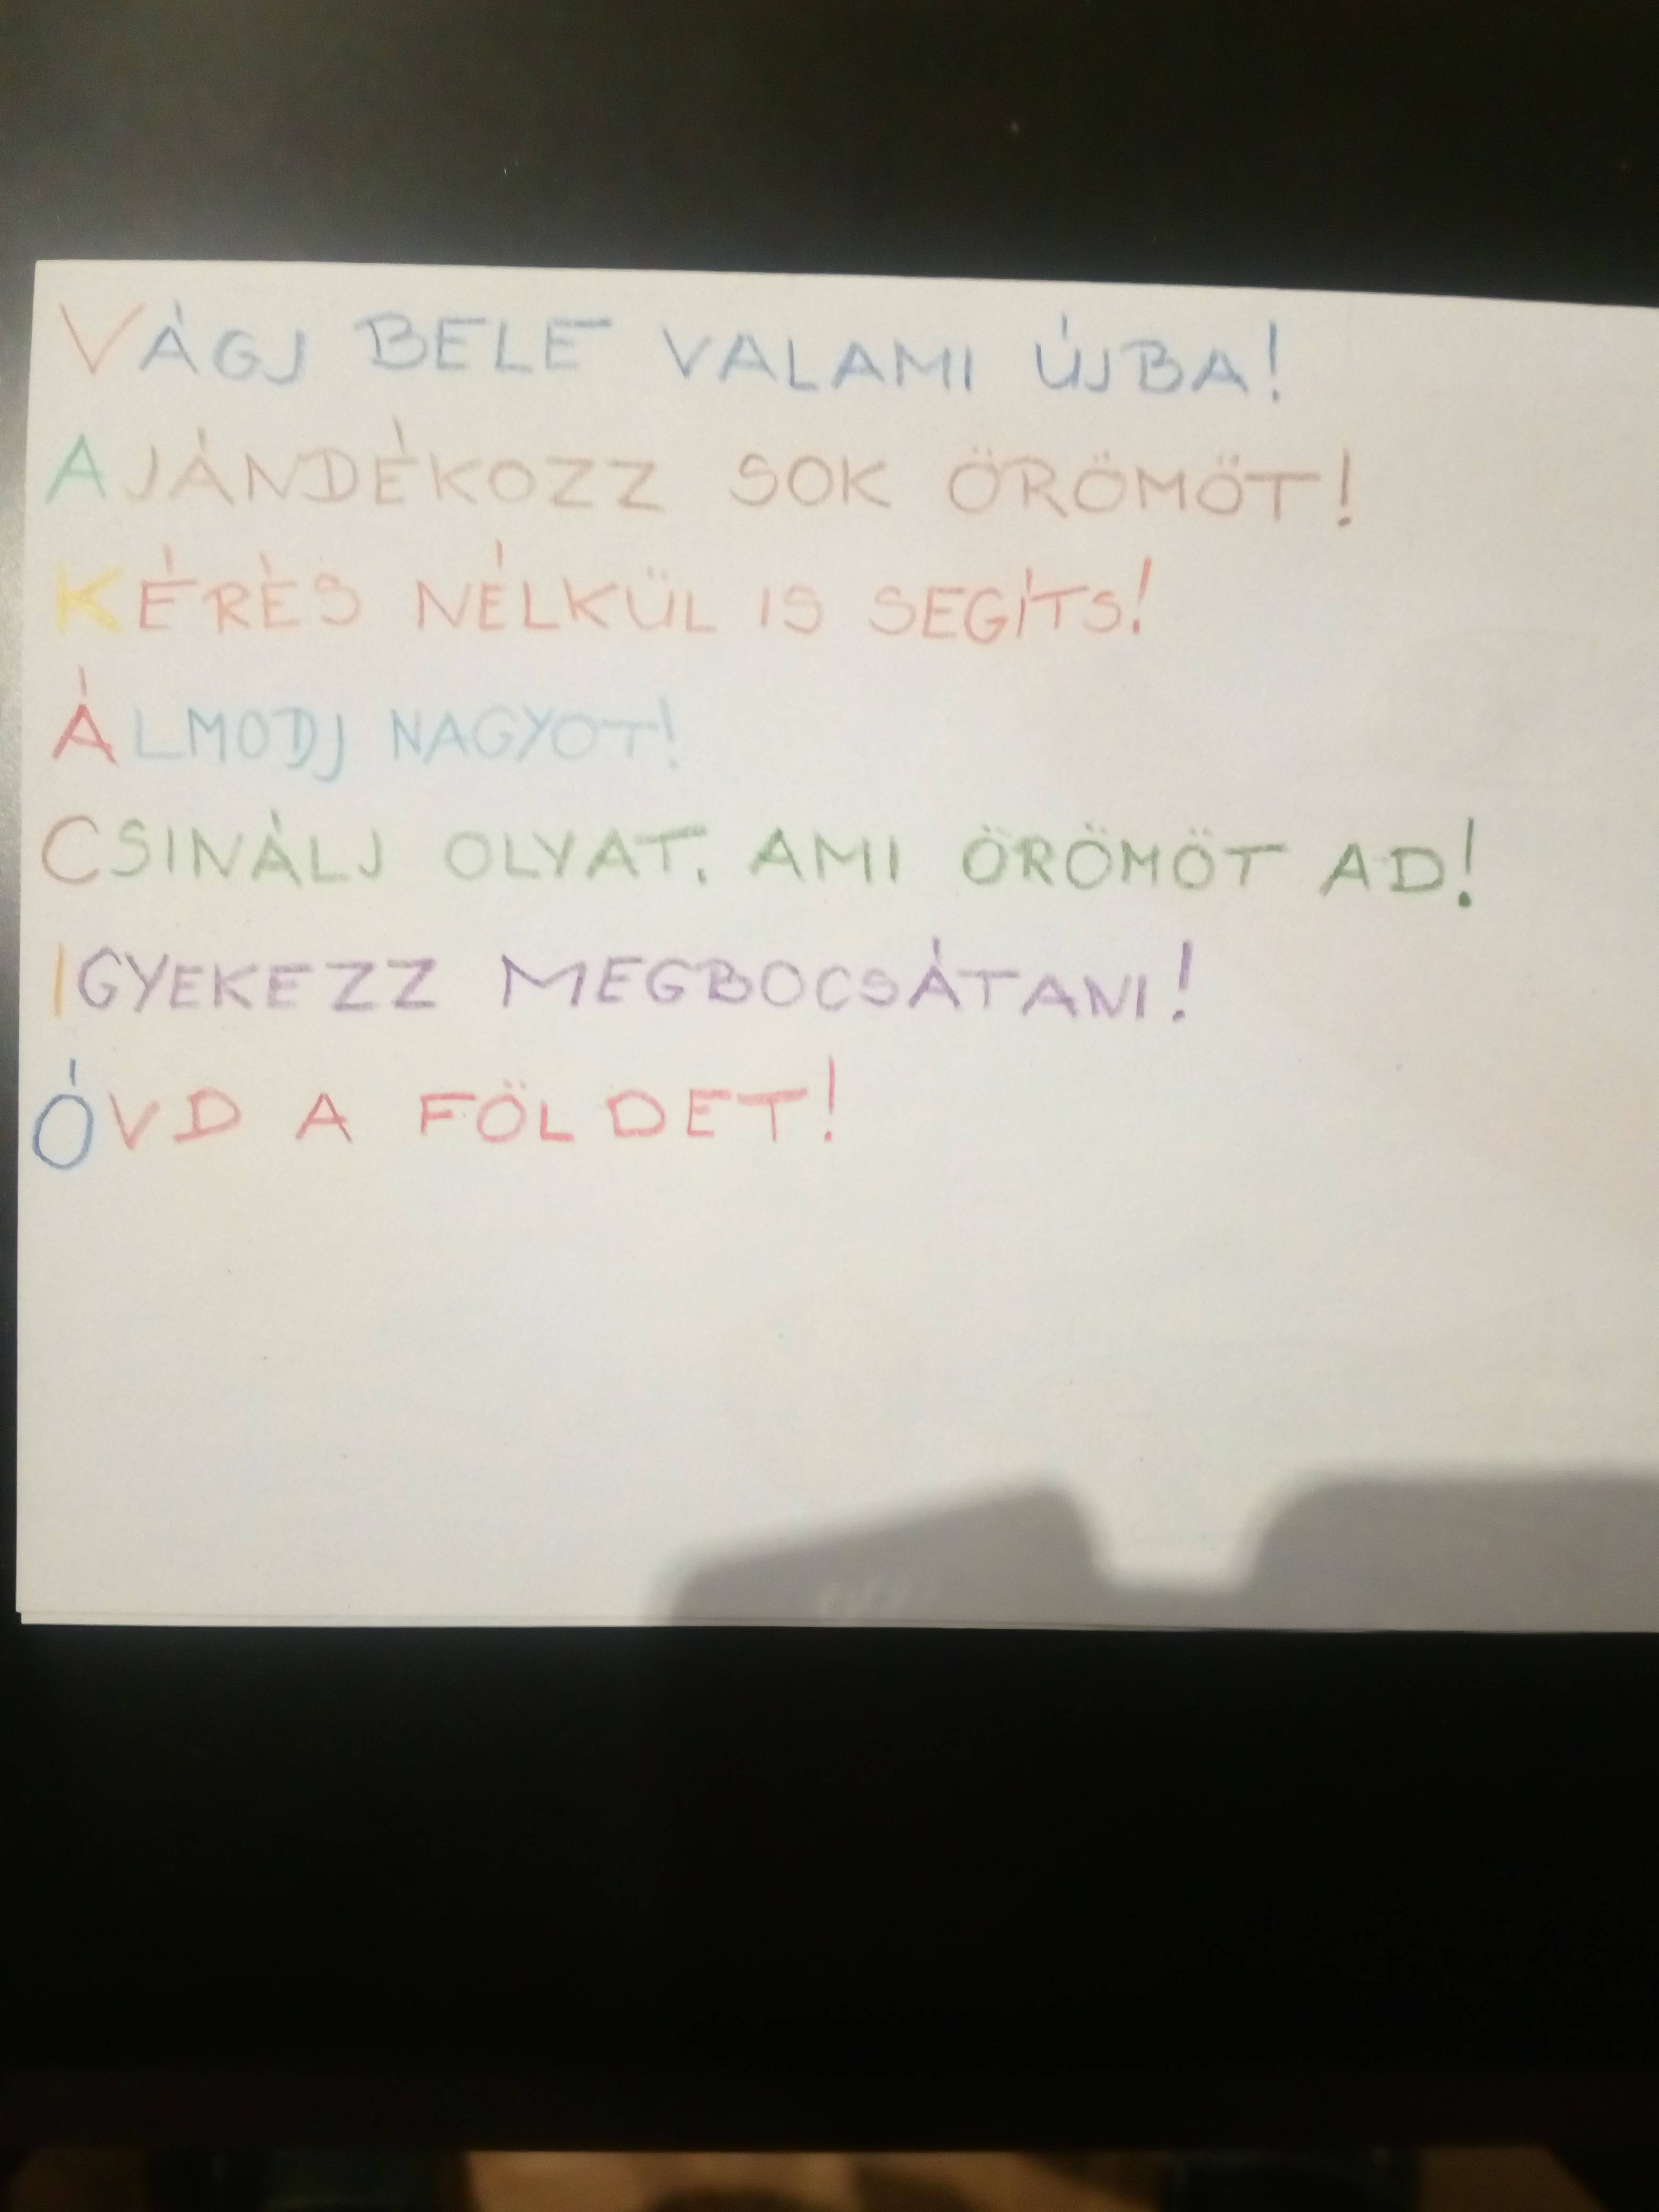 VÁGJ BELE VALAMI ÚJBA!
AJÁNDÉKOZZ SOK ÖRÖMÖT!
KÉRÉS NÉLKÜL IS SEGÍTS!
ÁLMODJ NAGYOT!
CSINÁLJ OLYAT, AMI ÖRÖMÖT AD!
IGYEKEZZ MEGBOCSÁTANI!
ÓVD A FÖLDET!